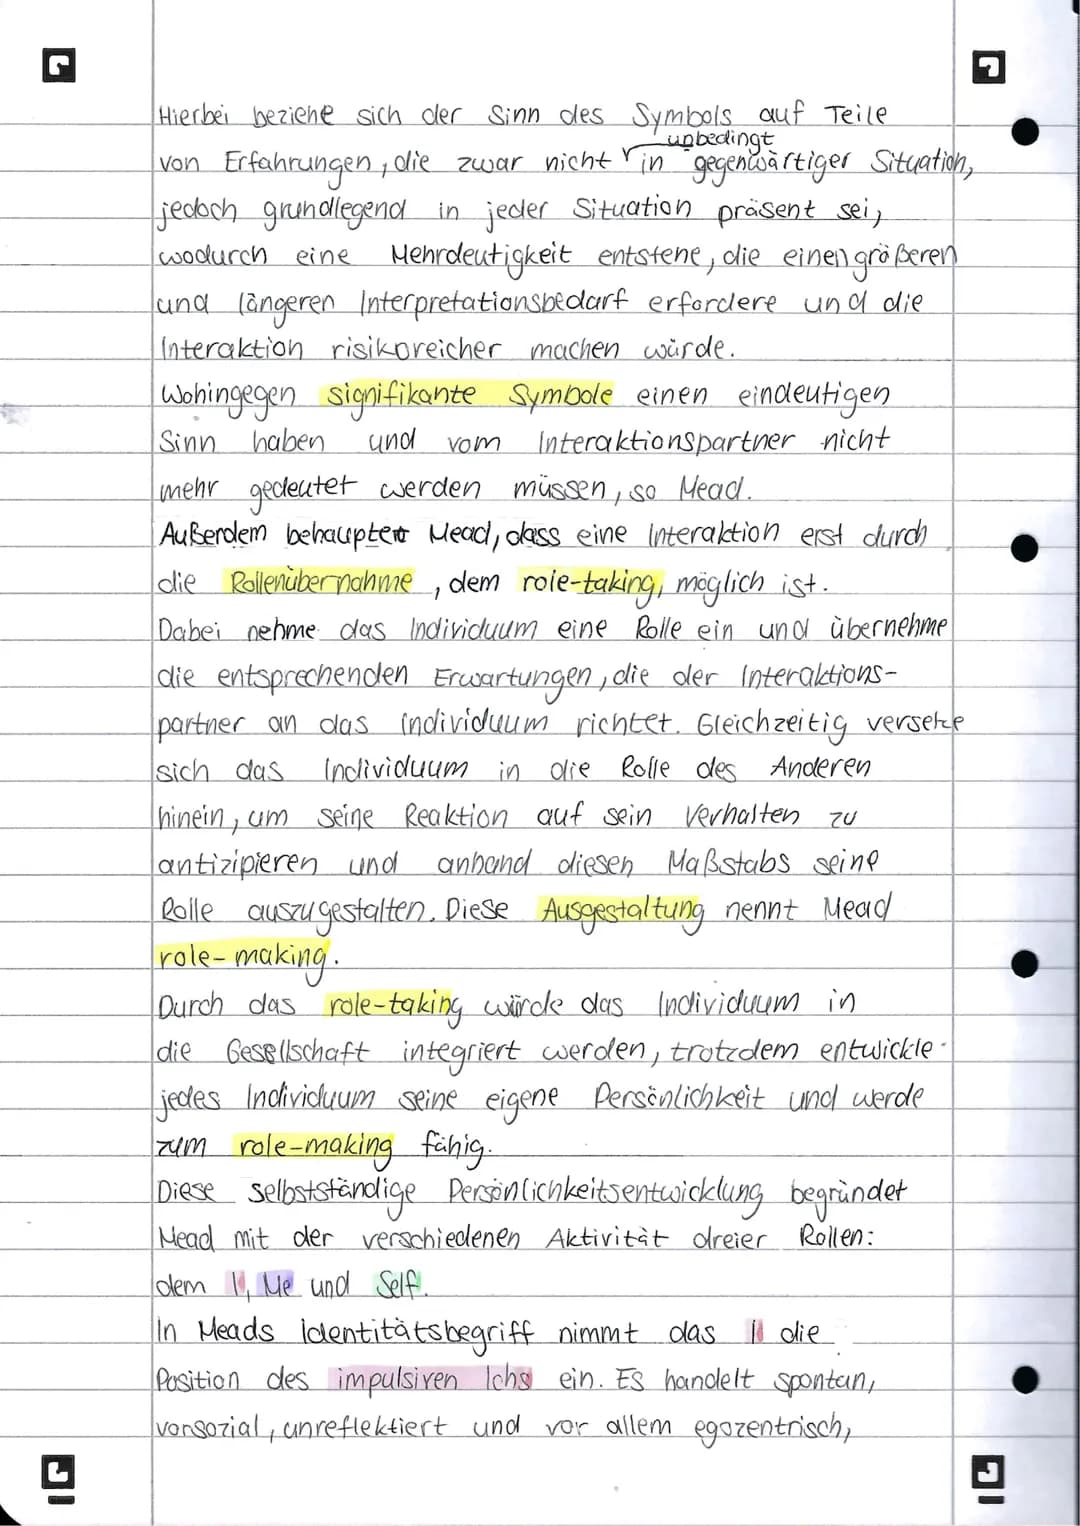 Hierbei beziehe sich der Sinn des Symbols auf Teile
unbedingt
von Erfahrungen, die zwar nicht in gegenwärtiger Situation,
jedoch grundlegend in jeder Situation präsent sei,
wodurch eine Mehrdeutigkeit entstehe, die einen größeren
und längeren Interpretationsbedarf erfordere und die
Interaktion risikoreicher machen würde.
Wohingegen signifikante Symbole einen eindeutigen
Sinn haben und vom Interaktionspartner nicht
mehr gedeutet werden müssen, so Mead.
Außerdem behauptet Mead, dass eine Interaktion erst durch
die Rollenübernahme, dem role-taking, möglich ist.
Dabei nehme das Individuum eine Rolle ein und übernehme
die entsprechenden Erwartungen, die der Interaktions-
partner an das Individuum richtet. Gleichzeitig versetze
sich das Individuum in die Rolle des Anderen
hinein, um seine Reaktion auf sein Verhalten zu
antizipieren und anhand diesen Maßstabs seine
Rolle auszugestalten. Diese Ausgestaltung nennt Mead
role-making.
Durch das role-taking würde das Individuum in
die Gesellschaft integriert werden, trotzdem entwickle
jedes Individuum seine eigene Persönlichkeit und werde
zum role-making fähig.
Diese selbstständige Persönlichkeitsentwicklung begründet
Mead mit der verschiedenen Aktivität dreier Rollen:
dem I, Me und Self.
In Meads Identitätsbegriff nimmt das I die
Position des impulsiven Ichs ein. Es handelt spontan,
vorsozial, unreflektiert und vor allem egozentrisch,